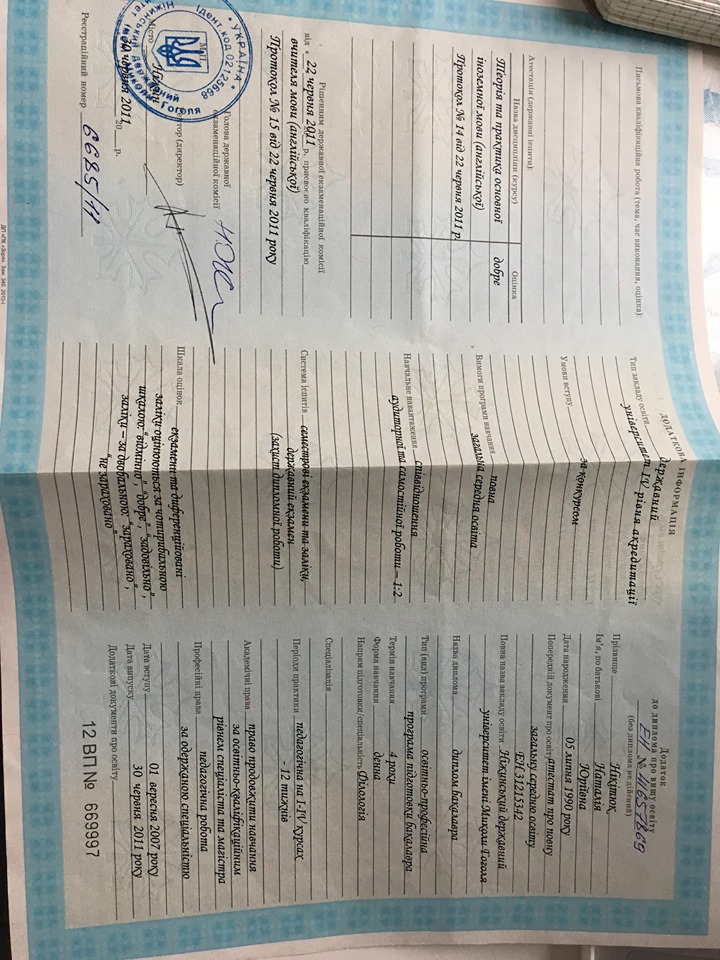 Додаток
до диплома про вищу освіту
ЕН № 41657869
(без диплома не дійсний)
Прізвище Нікітюк
Ім'я, по батькові Наталія
Юріївна
Дата народження 05 липня 1990 року
Попередній документ про освіту атестат про повну
загальну середню освіту
ЕН 31215342
Повна назва закладу освіти Ніжинський державний
університет імені Миколи Гоголя
Назва диплома диплом бакалавра
Тип (вид) програми освітньо-професійна
програма підготовки бакалавра
Термін навчання 4 роки
Форма навчання денна
Напрям підготовки/спеціальність Філологія
Спеціалізація
Періоди практики педагогічна на I-IV курсах
- 12 тижнів
Академічні права право продовжити навчання
за освітньо-кваліфікаційним
рівнем спеціаліста та магістра
Професійні права педагогічна робота
за одержаною спеціальністю
Дата вступу 01 вересня 2007 року
Дата випуску 30 червня 2011 року
Додаткові документи про освіту
12 ВП № 669997
ДОДАТКОВА ІНФОРМАЦІЯ
Тип закладу освіти державний
університет IV рівня акредитації
Умови вступу
за конкурсом
Вимоги програми навчання повна
загальна середня освіта
Навчальне навантаження співвідношення
аудиторної та самостійної роботи – 1:2
Система іспитів семестрові екзамени та заліки,
державний екзамен
(захист дипломної роботи)
Шкала оцінок екзамени та диференційовані
заліки оцінюються за чотирибальною
шкалою: "відмінно", "добре", "задовільно",
заліки – за двобальною: "зараховано",
"не зараховано"
Письмова кваліфікаційна робота (тема, час виконання, оцінка):
Атестація (державні іспити):
Назва дисципліни (курсу) Оцінка
Теорія та практика основної добре
іноземної мови (англійської)
Протокол № 14 від 22 червня 2011 р.
Рішенням державної екзаменаційної комісії
від " 22 червня 2011 р. присвоєно кваліфікацію
вчителя мови (англійської)
Протокол № 15 від 22 червня 2011 року
Голова державної
екзаменаційної комісії
(директор)
М.П.
Місто
червня 2011 20 р.
Реєстраційний номер 6685/11
УКРАЇНА
Ідент. код 02125668
державний
Миколи Гоголя